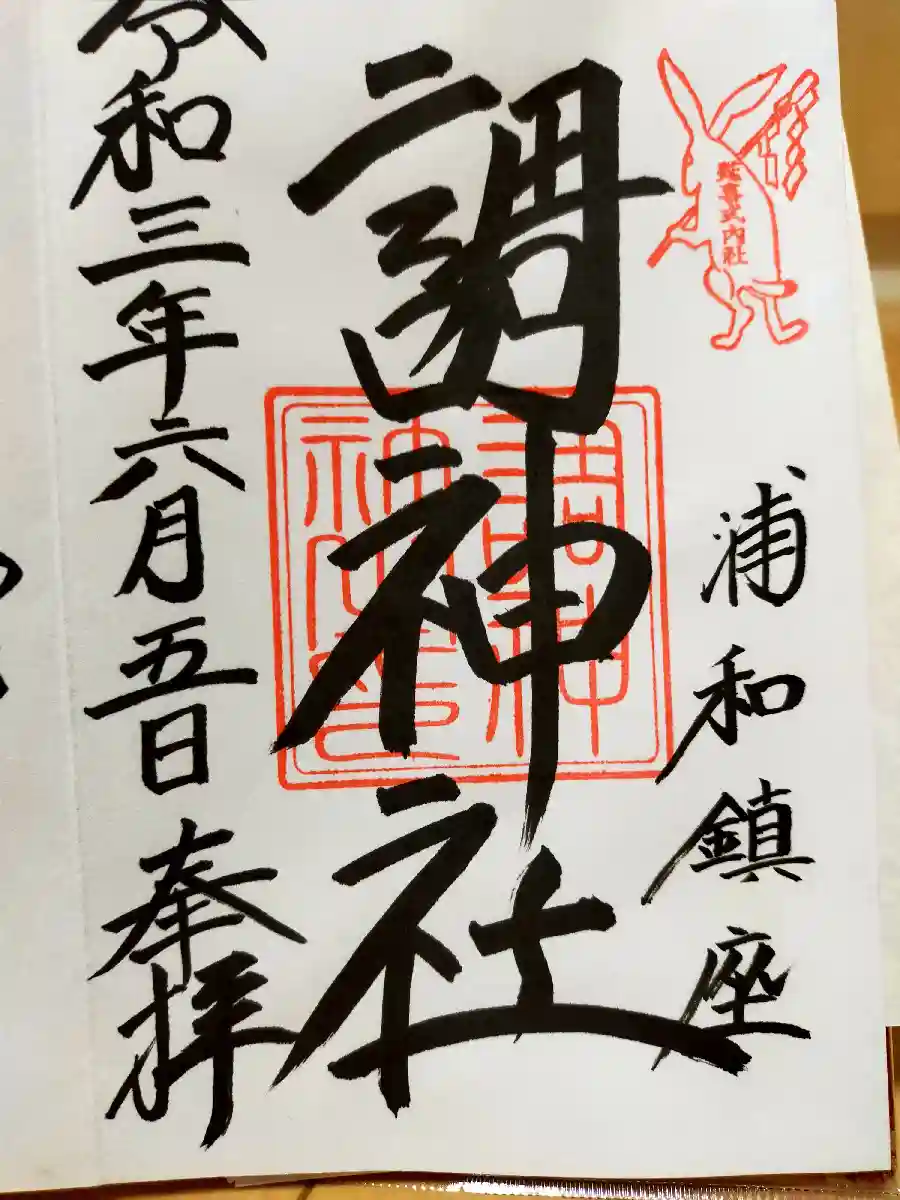 延喜式内社
浦和鎮座
調神社
調神
社之印
令和三年六月五日 奉拝